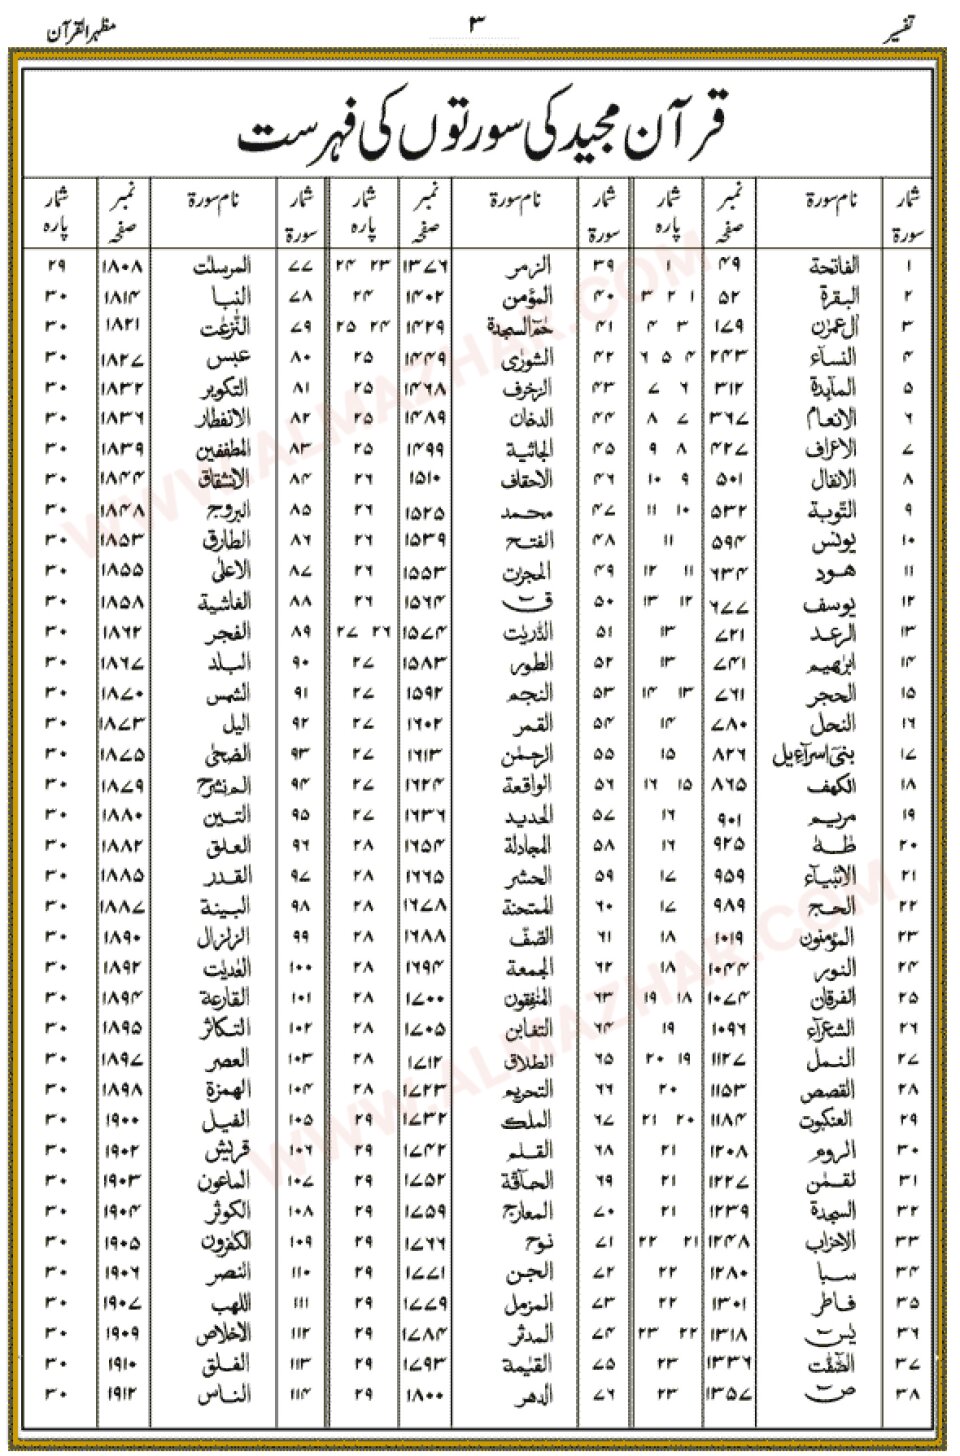 تفسیر ۳ مظہر القرآن
قرآن مجید کی سورتوں کی فہرست
شمار سورۃ نام سورۃ نمبر صفحہ شمار پارہ شمار سورۃ نام سورۃ نمبر صفحہ شمار پارہ شمار سورۃ نام سورۃ نمبر صفحہ شمار پارہ
۱ الفاتحة ۴۹ ۱ ۳۹ الزمر ۱۳۷۶ ۲۳ ۲۴ ۷۷ المرسلت ۱۸۰۸ ۲۹
۲ البقرة ۵۲ ۱ ۲ ۳ ۴۰ المؤمن ۱۴۰۲ ۲۴ ۷۸ النبا ۱۸۱۴ ۳۰
۳ اٰل عمرٰن ۱۷۹ ۳ ۴ ۴۱ حٰمٓ السجدة ۱۴۲۹ ۲۴ ۲۵ ۷۹ النّٰزعٰت ۱۸۲۱ ۳۰
۴ النسآء ۲۴۳ ۴ ۵ ۶ ۴۲ الشورٰى ۱۴۴۹ ۲۵ ۸۰ عبس ۱۸۲۷ ۳۰
۵ المآىدة ۳۱۲ ۶ ۷ ۴۳ الزخرف ۱۴۶۸ ۲۵ ۸۱ التكوير ۱۸۳۲ ۳۰
۶ الانعام ۳۶۷ ۷ ۸ ۴۴ الدخان ۱۴۸۹ ۲۵ ۸۲ الانفطار ۱۸۳۶ ۳۰
۷ الاعراف ۴۲۷ ۸ ۹ ۴۵ الجاثية ۱۴۹۹ ۲۵ ۸۳ المطففين ۱۸۳۹ ۳۰
۸ الانفال ۵۰۱ ۹ ۱۰ ۴۶ الاحقاف ۱۵۱۰ ۲۶ ۸۴ الانشقاق ۱۸۴۴ ۳۰
۹ التوبة ۵۳۲ ۱۰ ۱۱ ۴۷ محمد ۱۵۲۵ ۲۶ ۸۵ البروج ۱۸۴۸ ۳۰
۱۰ يونس ۵۹۴ ۱۱ ۴۸ الفتح ۱۵۳۹ ۲۶ ۸۶ الطارق ۱۸۵۳ ۳۰
۱۱ هود ۶۳۴ ۱۱ ۱۲ ۴۹ الحجرٰت ۱۵۵۳ ۲۶ ۸۷ الاعلىٰ ۱۸۵۵ ۳۰
۱۲ يوسف ۶۷۷ ۱۲ ۱۳ ۵۰ قٓ ۱۵۶۴ ۲۶ ۸۸ الغاشية ۱۸۵۸ ۳۰
۱۳ الرعد ۷۲۱ ۱۳ ۵۱ الذّريٰت ۱۵۷۴ ۲۶ ۲۷ ۸۹ الفجر ۱۸۶۲ ۳۰
۱۴ ابرٰهيم ۷۴۱ ۱۳ ۵۲ الطور ۱۵۸۳ ۲۷ ۹۰ البلد ۱۸۶۷ ۳۰
۱۵ الحجر ۷۶۱ ۱۳ ۱۴ ۵۳ النجم ۱۵۹۲ ۲۷ ۹۱ الشمس ۱۸۷۰ ۳۰
۱۶ النحل ۷۸۰ ۱۴ ۵۴ القمر ۱۶۰۲ ۲۷ ۹۲ اليل ۱۸۷۳ ۳۰
۱۷ بنىٓ اسرآءيل ۸۲۶ ۱۵ ۵۵ الرحمٰن ۱۶۱۳ ۲۷ ۹۳ الضحىٰ ۱۸۷۵ ۳۰
۱۸ الكهف ۸۶۵ ۱۵ ۱۶ ۵۶ الواقعة ۱۶۲۴ ۲۷ ۹۴ الم نشرح ۱۸۷۹ ۳۰
۱۹ مريم ۹۰۱ ۱۶ ۵۷ الحديد ۱۶۳۶ ۲۷ ۹۵ التين ۱۸۸۰ ۳۰
۲۰ طٰهٰ ۹۲۵ ۱۶ ۵۸ المجادلة ۱۶۵۴ ۲۸ ۹۶ العلق ۱۸۸۲ ۳۰
۲۱ الانبيآء ۹۵۹ ۱۷ ۵۹ الحشر ۱۶۶۵ ۲۸ ۹۷ القدر ۱۸۸۵ ۳۰
۲۲ الحج ۹۸۹ ۱۷ ۶۰ الممتحنة ۱۶۷۸ ۲۸ ۹۸ البينة ۱۸۸۷ ۳۰
۲۳ المؤمنون ۱۰۱۹ ۱۸ ۶۱ الصّفّ ۱۶۸۸ ۲۸ ۹۹ الزلزال ۱۸۹۰ ۳۰
۲۴ النور ۱۰۴۴ ۱۸ ۶۲ الجمعة ۱۶۹۴ ۲۸ ۱۰۰ العٰديٰت ۱۸۹۲ ۳۰
۲۵ الفرقان ۱۰۷۴ ۱۸ ۱۹ ۶۳ المنٰفقون ۱۷۰۰ ۲۸ ۱۰۱ القارعة ۱۸۹۴ ۳۰
۲۶ الشعرآء ۱۰۹۶ ۱۹ ۶۴ التغابن ۱۷۰۵ ۲۸ ۱۰۲ التكاثر ۱۸۹۵ ۳۰
۲۷ النمل ۱۱۲۷ ۱۹ ۲۰ ۶۵ الطلاق ۱۷۱۲ ۲۸ ۱۰۳ العصر ۱۸۹۷ ۳۰
۲۸ القصص ۱۱۵۳ ۲۰ ۶۶ التحريم ۱۷۲۳ ۲۸ ۱۰۴ الهمزة ۱۸۹۸ ۳۰
۲۹ العنكبوت ۱۱۸۴ ۲۰ ۲۱ ۶۷ الملك ۱۷۳۲ ۲۹ ۱۰۵ الفيل ۱۹۰۰ ۳۰
۳۰ الروم ۱۲۰۸ ۲۱ ۶۸ القلم ۱۷۴۲ ۲۹ ۱۰۶ قريش ۱۹۰۲ ۳۰
۳۱ لقمٰن ۱۲۲۷ ۲۱ ۶۹ الحآقة ۱۷۵۲ ۲۹ ۱۰۷ الماعون ۱۹۰۳ ۳۰
۳۲ السجدة ۱۲۳۹ ۲۱ ۷۰ المعارج ۱۷۵۹ ۲۹ ۱۰۸ الكوثر ۱۹۰۴ ۳۰
۳۳ الاحزاب ۱۲۴۸ ۲۱ ۲۲ ۷۱ نوح ۱۷۶۶ ۲۹ ۱۰۹ الكٰفرون ۱۹۰۵ ۳۰
۳۴ سبا ۱۲۸۰ ۲۲ ۷۲ الجن ۱۷۷۱ ۲۹ ۱۱۰ النصر ۱۹۰۶ ۳۰
۳۵ فاطر ۱۳۰۱ ۲۲ ۷۳ المزمل ۱۷۷۹ ۲۹ ۱۱۱ اللهب ۱۹۰۷ ۳۰
۳۶ يٰسٓ ۱۳۱۸ ۲۲ ۲۳ ۷۴ المدثر ۱۷۸۴ ۲۹ ۱۱۲ الاخلاص ۱۹۰۹ ۳۰
۳۷ الصّٰٓفّٰت ۱۳۳۶ ۲۳ ۷۵ القيٰمة ۱۷۹۳ ۲۹ ۱۱۳ الفلق ۱۹۱۰ ۳۰
۳۸ صٓ ۱۳۵۷ ۲۳ ۷۶ الدهر ۱۸۰۰ ۲۹ ۱۱۴ الناس ۱۹۱۲ ۳۰
WWW.ALMAZHAR.COM
WWW.ALMAZHAR.COM